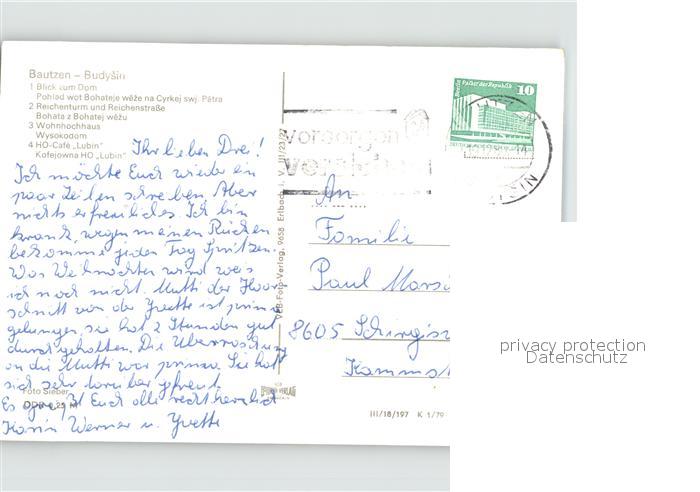 Bautzen – Budyšin
1 Blick zum Dom
Pohlad wot Bohateje wěže na Cyrkej swj. Pětra
2 Reichenturm und Reichenstraße
Bohata z Bohatej wěžu
3 Wohnhochhaus
Wysokodom
4 HO-Café „Lubin"
Kofejownja HO „Lubin"
Ihr lieben Drei!
Ich möchte Euch wieder ein
paar Zeilen schreiben Aber
nichts erfreuliches. Ich bin
krank, wegen meinen Rücken
bekomme jeden Tag Spritzen.
Was Weihnachten wird weis
ich noch nicht. Mutti der Haar
schnitt von der Yvette ist prima
gelungen, sie hat 2 Stunden gut
durchgehalten. Die Überraschung
an die Mutti war prima. Sie hat
sich sehr darüber gefreut.
Es grüßt Euch alle recht herzlich
Karin Werner u. Yvette
Foto Sieber
VEB Foto-Verlag, 9658 Erlbach i. V.
vorsorgen
10
Palast der Republik
An
Familie
Paul
8605
III/18/197 K 1/79
privacy protection
Datenschutz